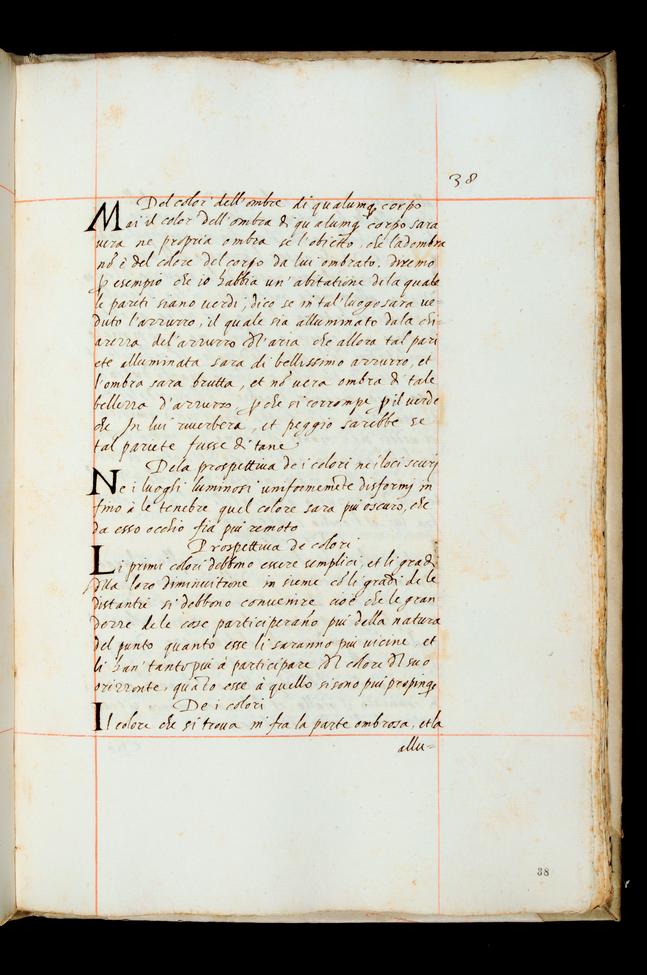 38
Del color dell'ombre di qualumq corpo
Mai il color dell'ombra di qualumq corpo sara
uera ne propria ombra se l'obietto, che ladombra
nō è del colore del corpo da lui ombrato. diremo
p esempio che io habbia un'abitatione dela quale
le pariti siano uerdi; dico se in tal luogo sara ue=
duto l'azzurro, il quale sia alluminato dala chi=
arezza del'azzurro del'aria che allora tal pari
ete alluminata sara di bellissimo azzurro, et
l'ombra sara brutta, et nō uera ombra di tale
bellezza d'azzurro, p che si corrompe p il uerde
che In lui riuerbera, et peggio sarebbe se
tal pariete fusse di tane
Dela prospettiua de i colori ne i loci scurj
Ne i luoghi luminosi uniformemēte disformj in
fino à le tenebre quel colore sara piu oscuro, che
da esso occhio fia piu remoto
Prospettiua de colori
Li primi colori debbono essere semplici, et li gradi
dlla loro diminuitione in sieme cō li gradi de le
distantie si debbono conuenire cioè che le gran
dezze dele cose participerāno piu della natura
del punto quanto esse li saranno piu uicine, et
li han' tanto piu à participare del colore del suo
orizzonte, quāto esse à quello si sono piu propinqe
De i colori
Il colore che si troua in fra la parte ombrosa, et la
allu=
38